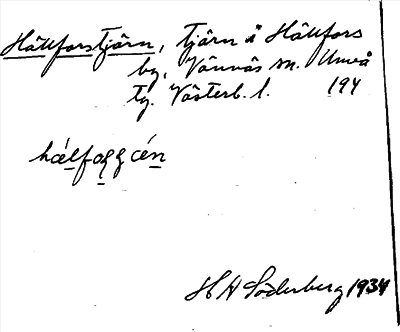 Hällforstjärn, tjärn å Hällfors
by, Vännäs sn. Umeå
tg. Västerb. l. 194
H N Söderberg 1934